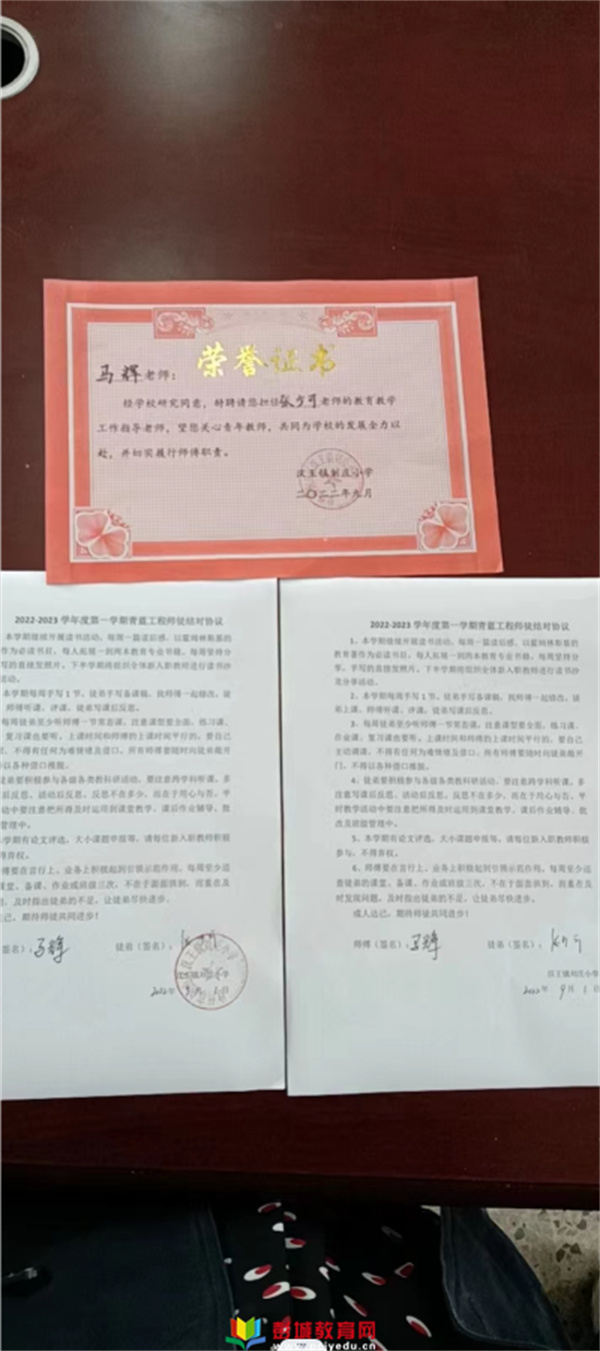 荣誉证书
马辉老师：
经学校研究同意，特聘请您担任张少可老师的教育教学
工作指导老师，望您关心青年教师，共同为学校的发展全力以
赴，并切实履行师傅职责。
汉王镇刘庄小学
二〇二二年九月
2022-2023学年度第一学期青蓝工程师徒结对协议
本学期继续开展读书活动，每周一篇读后感，以霍姆林斯基的
作为必读书目，每人拓展一到两本教育专业书籍，每周坚持分
写的直接发照片，下半学期将组织全体新入职教师进行读书沙
活动。
本学期每周手写1节，徒弟手写备课稿，找师傅一起修改，徒
师傅听课、评课，徒弟写课后反思。
每周徒弟至少听师傅一节常态课，注意课型要全面，练习课、
复习课也要听，上课时间和师傅的上课时间平行的，要自己
，不得有任何为难情绪及借口，所有师傅要随时向徒弟敞开
以各种借口推脱。
徒弟要积极参与各级各类教科研活动，要注意跨学科听课，多
后反思、活动后反思，反思不在多少，而在于用心与否，平
动中要注意把所得及时运用到课堂教学、课后作业辅导、批
管理中。
学期有论文评选、大小课题申报等，请每位新入职教师积极
得弃权。
傅要在言行上、业务上积极起到引领示范作用，每周至少巡
课堂、备课、作业或班级三次，不在于面面俱到，而重在及
，及时指出徒弟的不足，让徒弟尽快进步。
达己，期待师徒共同进步！
签名）：马辉 徒弟（签名）：
2022年
2022-2023学年度第一学期青蓝工程师徒结对协议
1、本学期继续开展读书活动，每周一篇读后感，以霍姆林斯基的
教育著作为必读书目，每人拓展一到两本教育专业书籍，每周坚持分
享，手写的直接发照片，下半学期将组织全体新入职教师进行读书沙
龙分享活动。
2、本学期每周手写1节，徒弟手写备课稿，找师傅一起修改，徒
弟上课，师傅听课、评课，徒弟写课后反思。
3、每周徒弟至少听师傅一节常态课，注意课型要全面，练习课、
作业课、复习课也要听，上课时间和师傅的上课时间平行的，要自己
主动调课，不得有任何为难情绪及借口，所有师傅要随时向徒弟敞开
门，不得以各种借口推脱。
4、徒弟要积极参与各级各类教科研活动，要注意跨学科听课，多
注意写课后反思、活动后反思，反思不在多少，而在于用心与否，平
时教学活动中要注意把所得及时运用到课堂教学、课后作业辅导、批
改及班级管理中。
5、本学期有论文评选、大小课题申报等，请每位新入职教师积极
参与，不得弃权。
6、师傅要在言行上、业务上积极起到引领示范作用，每周至少巡
查徒弟的课堂、备课、作业或班级三次，不在于面面俱到，而重在及
时发现问题，及时指出徒弟的不足，让徒弟尽快进步。
成人达己，期待师徒共同进步！
师傅（签名）：马辉 徒弟（签名）：
汉王镇刘庄小学
2022年9月1日
彭城教育网